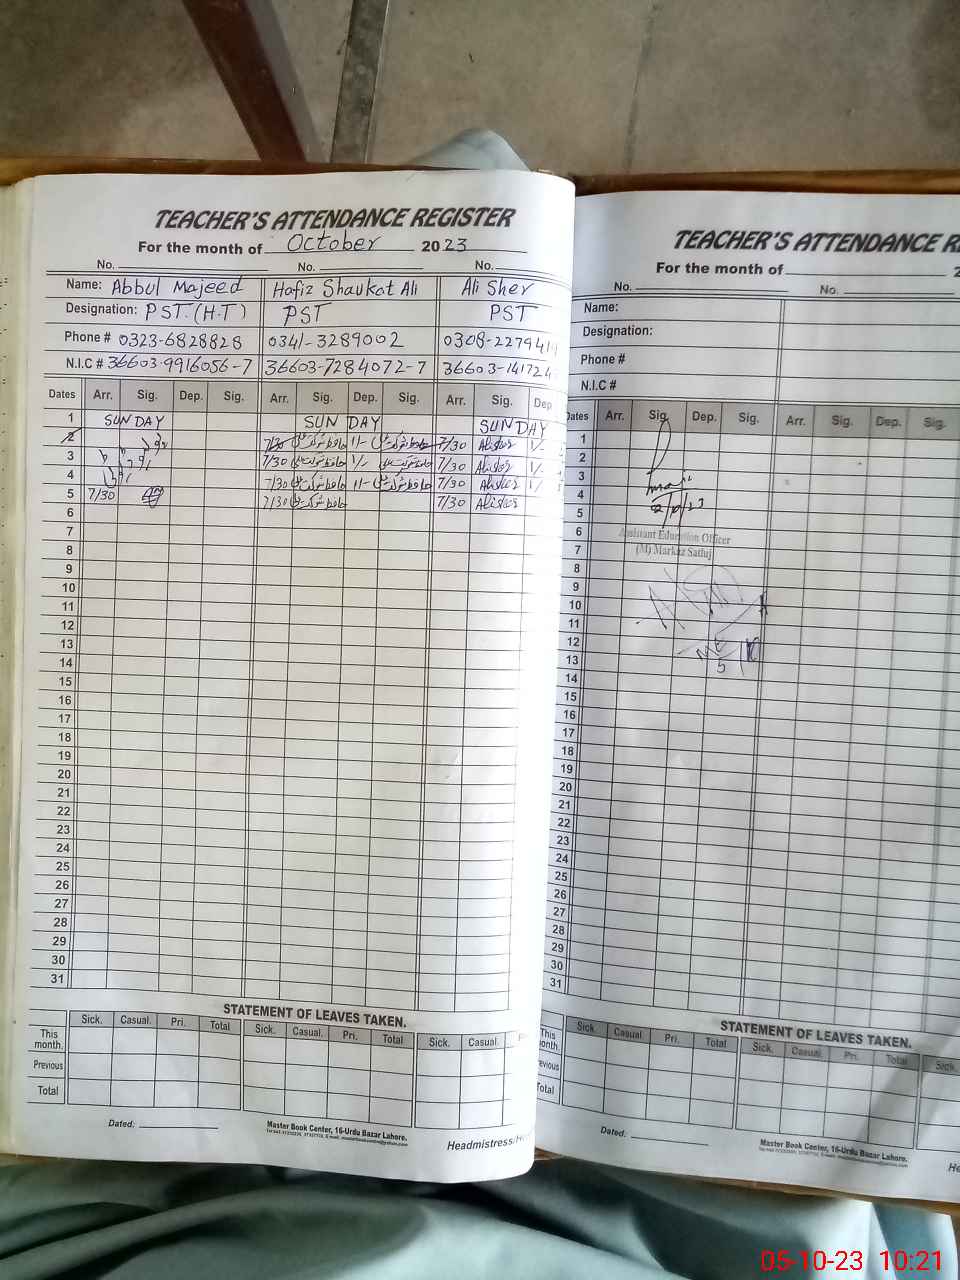 TEACHER'S ATTENDANCE REGISTER
For the month of October 2023
No. No. No.
Name: Abbul Majeed Hafiz Shaukat Ali Ali Sher
Designation: PST.(H.T) PST PST
Phone # 0323-6828828 0341-3289002 0308-2279414
N.I.C # 36603-9916056-7 36603-7284072-7 36603-141724
Dates Arr. Sig. Dep. Sig. Arr. Sig. Dep. Sig. Arr. Sig. Dep
1 SUNDAY SUNDAY SUNDAY
2 7/30 حافظ شوکت علی 1/- حافظ شوکت علی 7/30 Alisher 1/-
3 7/30 حافظ شوکت علی 1/- حافظ شوکت علی 7/30 Alisher 1/-
4 7/30 حافظ شوکت علی 1/- حافظ شوکت علی 7/30 Alisher 1/
5 7/30 7/30 حافظ شوکت علی 7/30 Alisher
6
7
8
9
10
11
12
13
14
15
16
17
18
19
20
21
22
23
24
25
26
27
28
29
30
31
STATEMENT OF LEAVES TAKEN.
Sick. Casual. Pri. Total Sick. Casual. Pri. Total Sick. Casual.
This month.
Previous
Total
Dated:
Master Book Center, 16-Urdu Bazar Lahore.
Headmistress/
TEACHER'S ATTENDANCE R
For the month of 2
No. No.
Name:
Designation:
Phone #
N.I.C #
Dates Arr. Sig. Dep. Sig. Arr. Sig. Dep. Sig.
1
2
3
4
5
6 Assistant Education Officer
7 (M) Markaz Satluj
8
9
10
11
12
13
14
15
16
17
18
19
20
21
22
23
24
25
26
27
28
29
30
31
STATEMENT OF LEAVES TAKEN.
Sick. Casual. Pri. Total Sick. Casual. Pri. Total Sick.
This month.
Previous
Total
Dated:
Master Book Center, 16-Urdu Bazar Lahore.
He
05-10-23 10:21